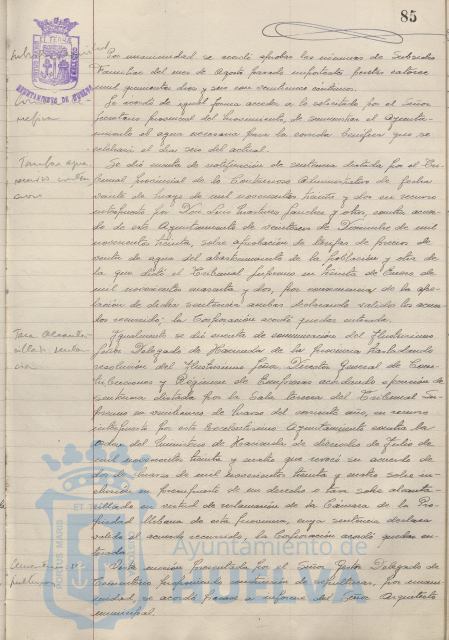 85
Por unanimidad se acordó aprobar las nóminas de Subsidio
Familiar del mes de Agosto pasado importantes pesetas catorce
mil quinientas diez y seis con veintiun céntimos.
Se acordó de igual forma acceder a lo solicitado por el Señor
Secretario provincial del Movimiento, de suministrar el Ayunta-
miento el agua necesaria para la corrida benéfica que se
celebrará el día seis del actual.
Se dió cuenta de notificación de sentencia dictada por el Tri-
bunal provincial de lo Contencioso Administrativo de fecha
veinte de Mayo de mil novecientos treinta y dos en recurso
interpuesto por Don Luis Martínez Sánchez y otros, contra acuer-
do de este Ayuntamiento de veintitres de Diciembre de mil
novecientos treinta, sobre aprobación de tarifas de precios de
venta de agua del abastecimiento de la población y otra de
la que dictó el Tribunal Supremo en treinta de Enero de
mil novecientos cuarenta y dos, por consecuencia de la ape-
lación de dicha sentencia ambas declarando validos los acuer-
dos recurridos; la Corporación acordó quedar enterada.
Tasa Alcanta-
rillado senten-
cia
Igualmente se dió cuenta de comunicación del Ilustrísimo
Señor Delegado de Hacienda de la provincia trasladando
resolución del Ilustrísimo Señor Director General de Con-
tribuciones y Régimen de Empresas acordando ejecución de
sentencia dictada por la Sala tercera del Tribunal Su-
premo en veintiuno de Marzo del corriente año, en recurso
interpuesto por este Excelentísimo Ayuntamiento contra la
orden del Ministerio de Hacienda de dieciocho de Julio de
mil novecientos treinta y cuatro que revocó su acuerdo de
dos de Marzo de mil novecientos treinta y cuatro sobre in-
clusión en presupuesto de un derecho o tasa sobre alcanta-
rillado en virtud de reclamación de la Cámara de la Pro-
piedad Urbana de esta provincia, cuya sentencia declara
valido el acuerdo recurrido, la Corporación acordó quedar en-
terada.
Vista moción presentada por el Señor Gestor Delegado de
Cementerio proponiendo construcción de sepulturas, por unani-
midad, se acordó pasase a informe del Señor Arquitecto
municipal.
Ayuntamiento de
HUELVA